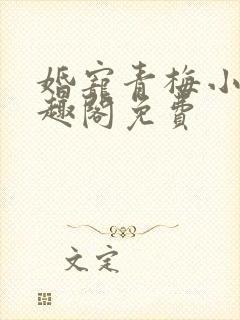 婚宠青梅小
趣阁免费
文定